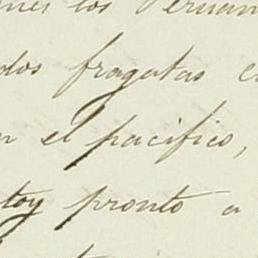 nes los Peruan
dos fragatas c
n el pacifico,
stoy pronto a